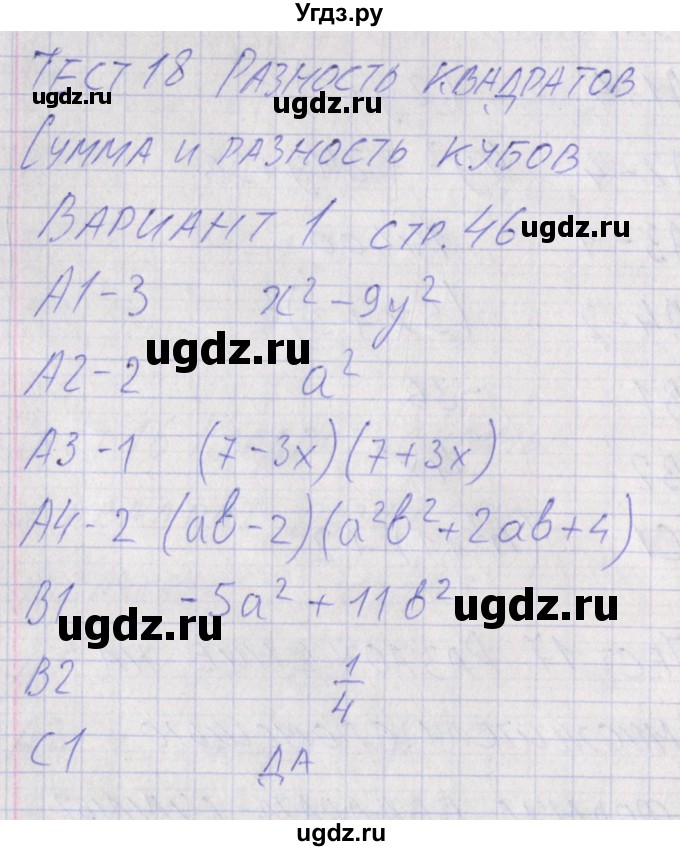 Угдз.ру
Тест 18 Разность квадратов
ugdz.ru ugdz.ru
Сумма и разность кубов
Вариант 1 стр. 46
ugdz.ru
А1-3 x² - 9y²
ugdz.ru
А2-2 a²
А3-1 (7-3x)(7+3x)
А4-2 (ab-2)(a²b²+2ab+4)
В1 -5a² + 11b²
ugdz.ru ugdz.ru
В2 1/4
С1 ДА
ugdz.ru